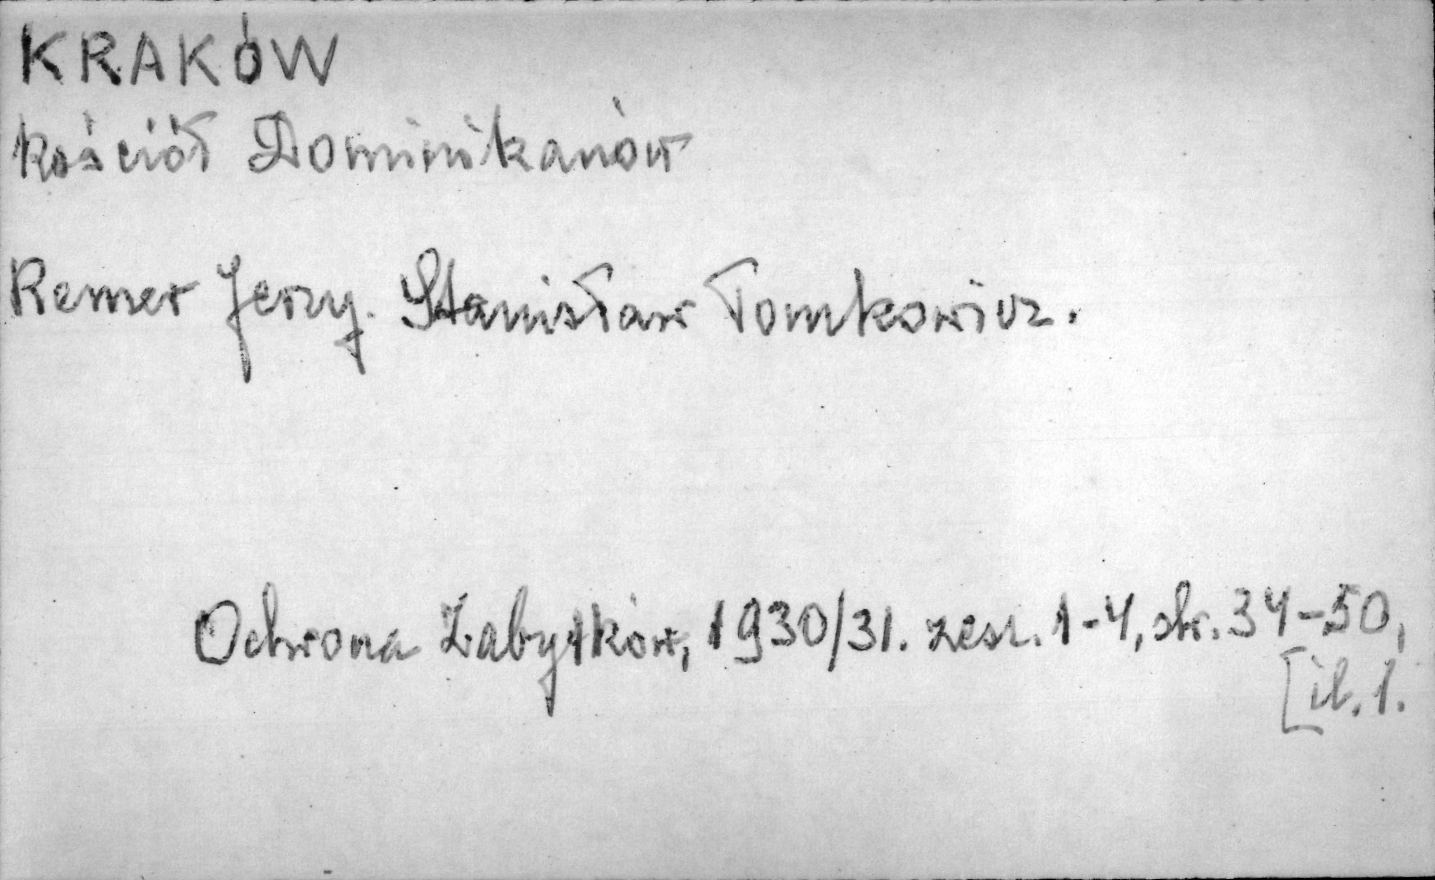 KRAKÓW
kościół Dominikanów
Remer Jerzy. Stanisław Tomkowicz.
Ochrona Zabytków, 1930/31. zesz. 1-4, str. 34-50,
[il. 1.